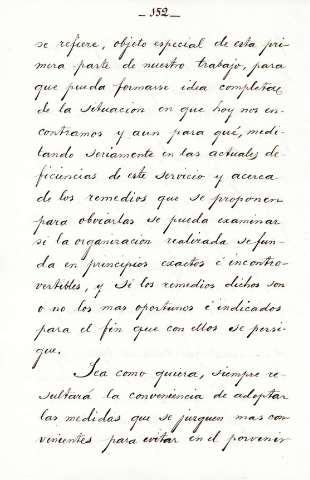 — 352 —
se refiere, objeto especial de esta pri-
mera parte de nuestro trabajo, para
que pueda formarse idea completa
de la situacion en que hoy nos en-
contramos y aun para que, medi-
tando seriamente en las actuales de-
ficiencias de este servicio y acerca
de los remedios que se proponen
para obviarlas se pueda examinar
si la organizacion realizada se fun-
da en principios exactos é incontro-
vertibles, y si los remedios dichos son
o no los mas oportunos é indicados
para el fin que con ellos se persi-
gue.
Sea como quiera, siempre re-
sultará la conveniencia de adoptar
las medidas que se juzguen mas con
venientes para evitar en el porvenir